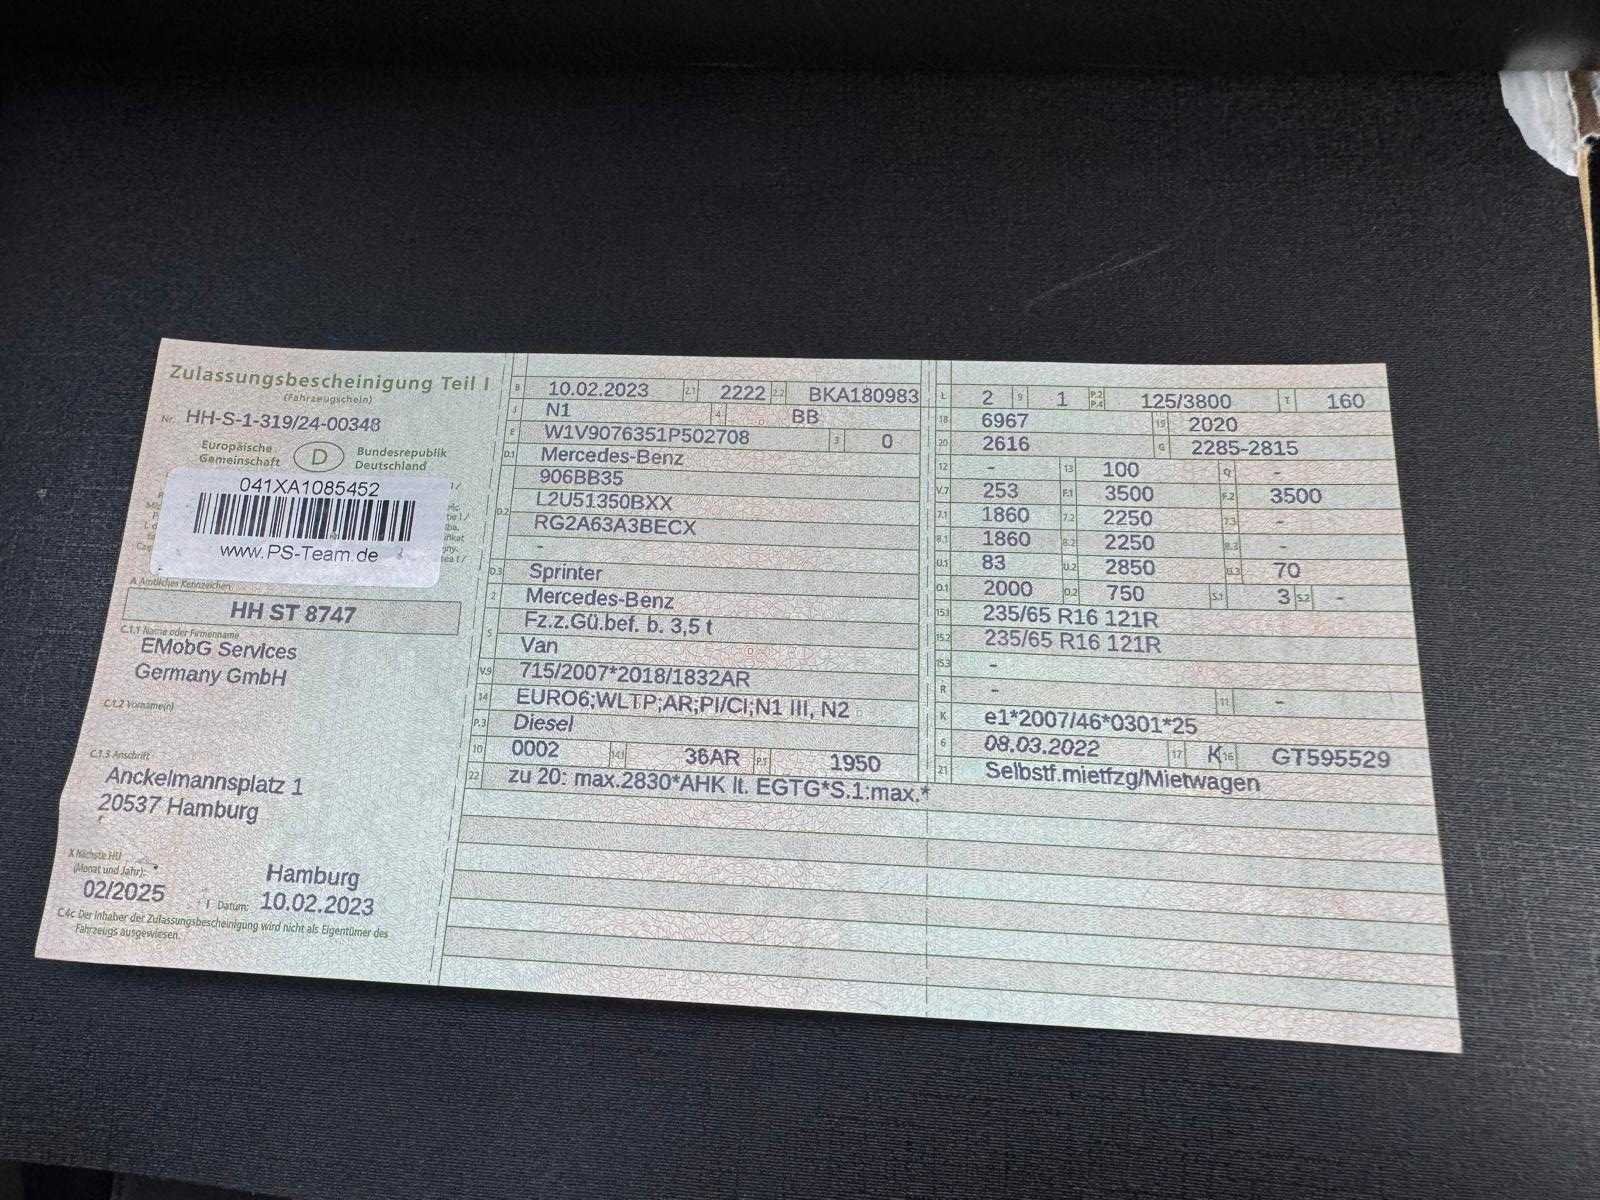 Zulassungsbescheinigung Teil I
(Fahrzeugschein)
Nr. HH-S-1-319/24-00348
Europäische Gemeinschaft
D
Bundesrepublik Deutschland
041XA1085452
www.PS-Team.de
A Amtliches Kennzeichen
HH ST 8747
C.1.1 Name oder Firmenname
EMobG Services
Germany GmbH
C.1.2 Vorname(n)
C.1.3 Anschrift
Anckelmannsplatz 1
20537 Hamburg
X Nächste HU
(Monat und Jahr):
02/2025
Hamburg
I Datum: 10.02.2023
C.4c Der Inhaber der Zulassungsbescheinigung wird nicht als Eigentümer des
Fahrzeugs ausgewiesen.
B 10.02.2023 2.1 2222 2.2 BKA180983
J N1 4 BB
E W1V9076351P502708 3 0
D.1 Mercedes-Benz
906BB35
D.2 L2U51350BXX
RG2A63A3BECX
-
D.3 Sprinter
2 Mercedes-Benz
5 Fz.z.Gü.bef. b. 3,5 t
Van
V.9 715/2007*2018/1832AR
14 EURO6;WLTP;AR;PI/CI;N1 III, N2
P.3 Diesel
10 0002 14.1 36AR P.1 1950
22 zu 20: max.2830*AHK lt. EGTG*S.1:max.*
L 2 9 1 P.2 P.4 125/3800 T 160
18 6967 19 2020
20 2616 G 2285-2815
12 - 13 100 Q -
V.7 253 F.1 3500 F.2 3500
7.1 1860 7.2 2250 7.3 -
8.1 1860 8.2 2250 8.3 -
U.1 83 U.2 2850 U.3 70
O.1 2000 O.2 750 S.1 3 S.2 -
15.1 235/65 R16 121R
15.2 235/65 R16 121R
15.3 -
R - 11 -
K e1*2007/46*0301*25
6 08.03.2022 17 K 16 GT595529
21 Selbstf.mietfzg/Mietwagen